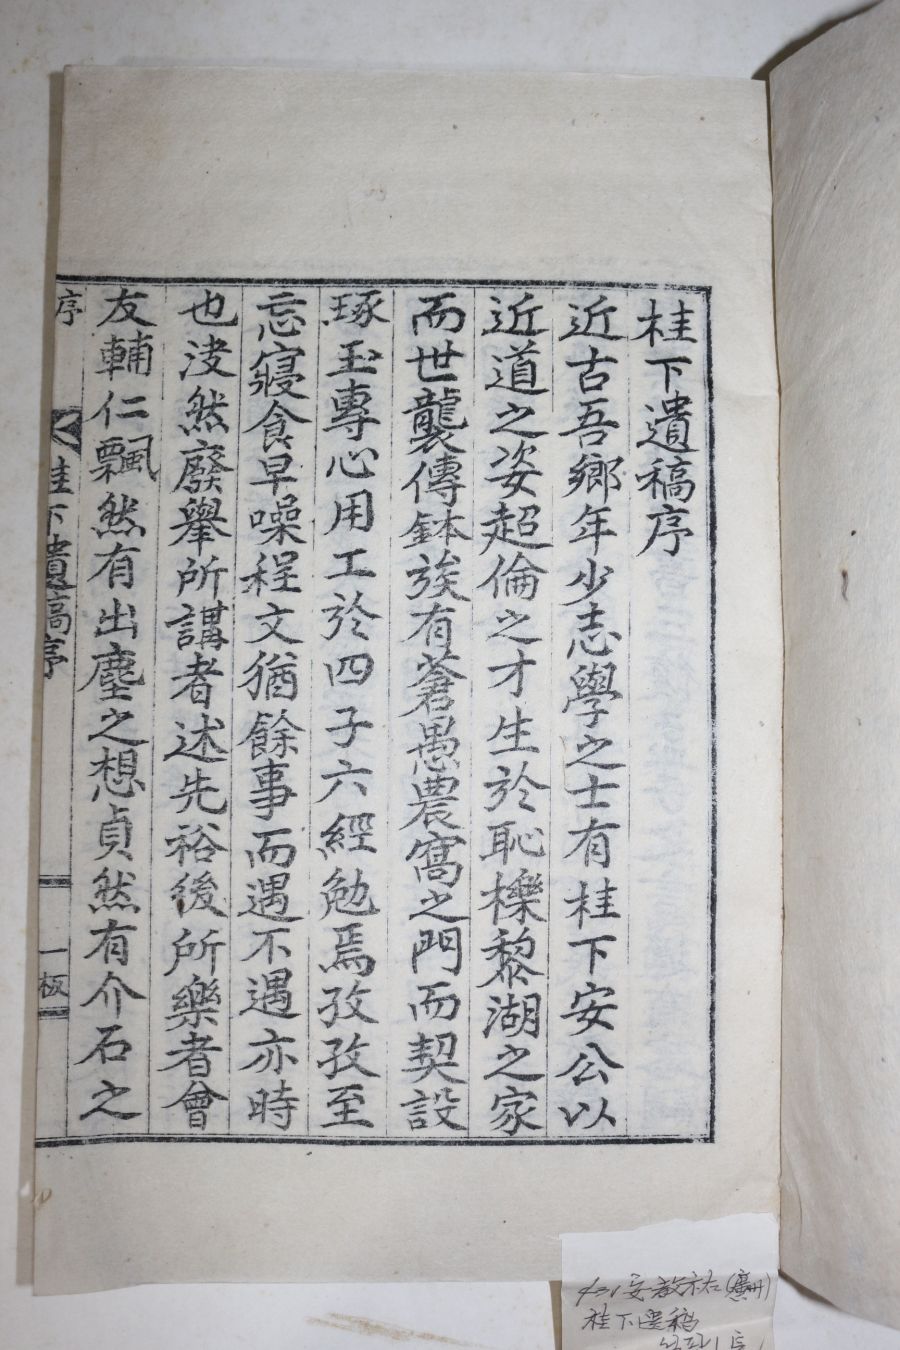 桂下遺稿序
近古吾鄉年少志學之士有桂下安公以
近道之姿超倫之才生於恥櫟黎湖之家
而世襲傳鉢族有蒼愚農窩之門而契設
琢玉專心用工於四子六經勉焉孜孜至
忘寢食早噪程文猶餘事而遇不遇亦時
也浚然廢擧所講者述先裕後所樂者會
友輔仁飄然有出塵之想貞然有介石之
序
桂下遺稿序
一板
安敎祐
桂下遺稿